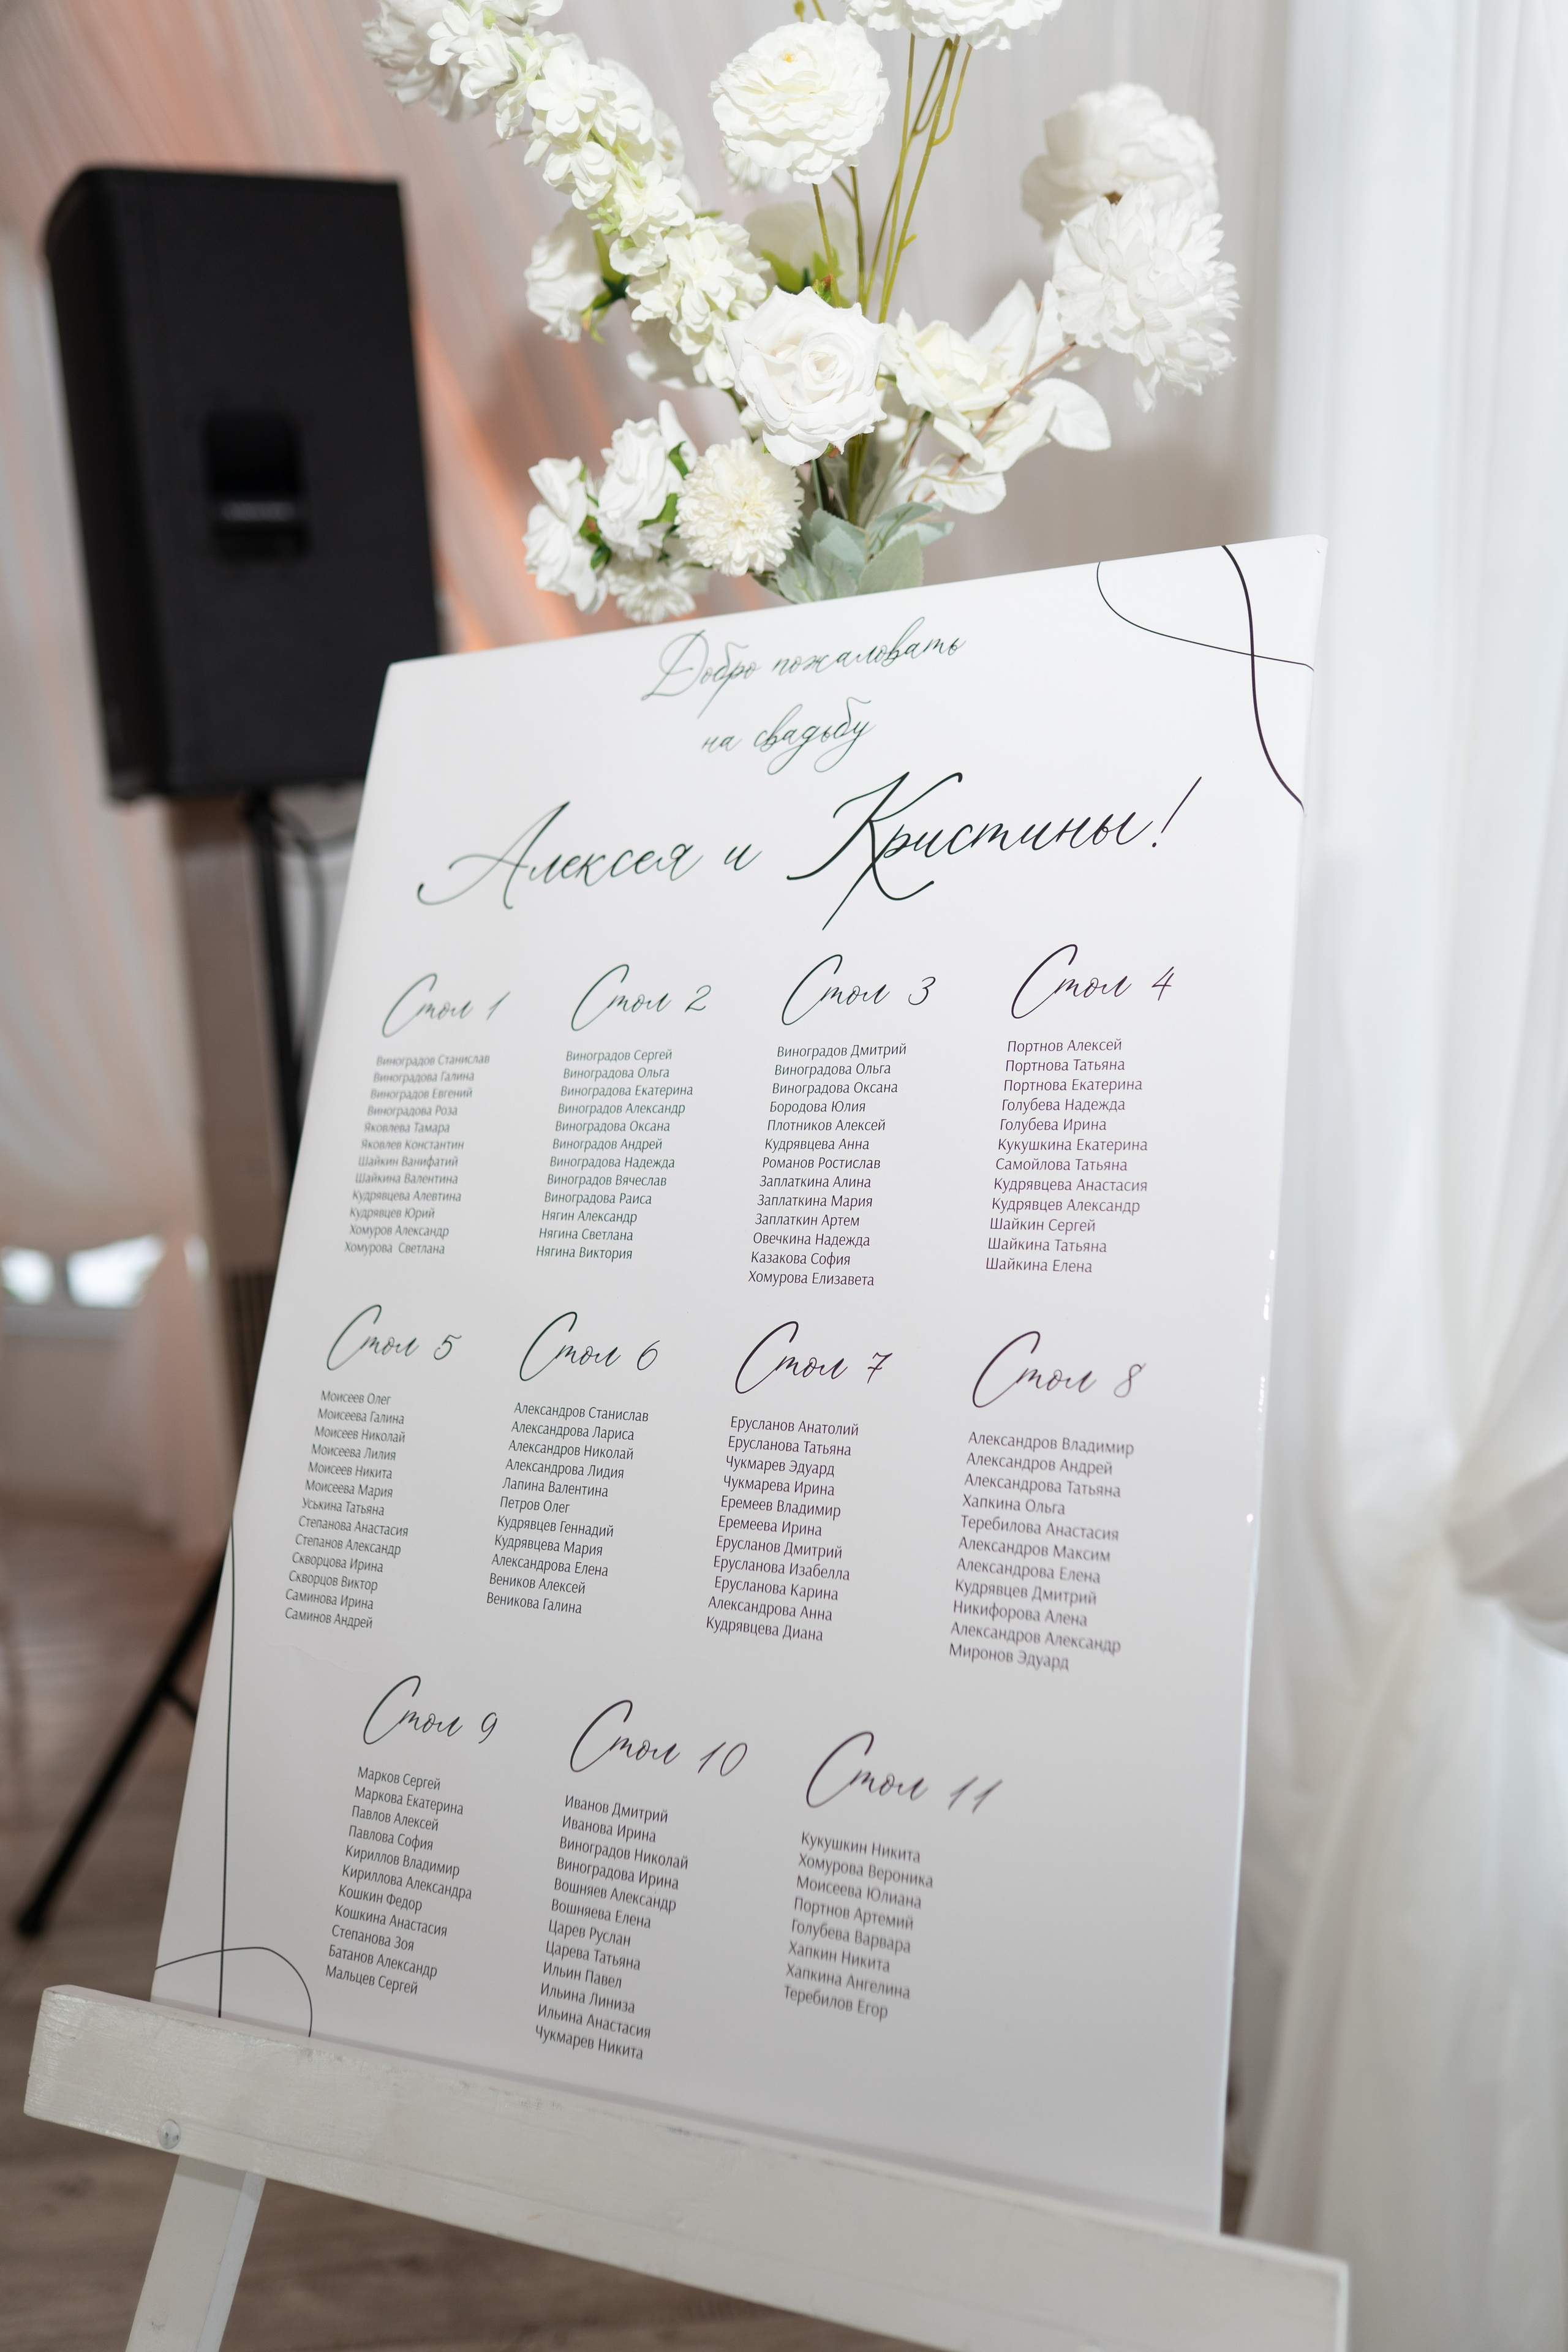 Добро пожаловать
на свадьбу
Алексея и Кристины!
Стол 1
Виноградов Станислав
Виноградова Галина
Виноградов Евгений
Виноградова Роза
Яковлева Тамара
Яковлев Константин
Шайкин Ванифатий
Шайкина Валентина
Кудрявцева Алевтина
Кудрявцев Юрий
Хомуров Александр
Хомурова Светлана
Стол 2
Виноградов Сергей
Виноградова Ольга
Виноградова Екатерина
Виноградов Александр
Виноградова Оксана
Виноградов Андрей
Виноградова Надежда
Виноградов Вячеслав
Виноградова Раиса
Нягин Александр
Нягина Светлана
Нягина Виктория
Стол 3
Виноградов Дмитрий
Виноградова Ольга
Виноградова Оксана
Бородова Юлия
Плотников Алексей
Кудрявцева Анна
Романов Ростислав
Заплаткина Алина
Заплаткина Мария
Заплаткин Артем
Овечкина Надежда
Казакова София
Хомурова Елизавета
Стол 4
Портнов Алексей
Портнова Татьяна
Портнова Екатерина
Голубева Надежда
Голубева Ирина
Кукушкина Екатерина
Самойлова Татьяна
Кудрявцева Анастасия
Кудрявцев Александр
Шайкин Сергей
Шайкина Татьяна
Шайкина Елена
Стол 5
Моисеев Олег
Моисеева Галина
Моисеев Николай
Моисеева Лилия
Моисеев Никита
Моисеева Мария
Уськина Татьяна
Степанова Анастасия
Степанов Александр
Скворцова Ирина
Скворцов Виктор
Саминова Ирина
Саминов Андрей
Стол 6
Александров Станислав
Александрова Лариса
Александров Николай
Александрова Лидия
Лапина Валентина
Петров Олег
Кудрявцев Геннадий
Кудрявцева Мария
Александрова Елена
Веников Алексей
Веникова Галина
Стол 7
Ерусланов Анатолий
Ерусланова Татьяна
Чукмарев Эдуард
Чукмарева Ирина
Еремеев Владимир
Еремеева Ирина
Ерусланов Дмитрий
Ерусланова Изабелла
Ерусланова Карина
Александрова Анна
Кудрявцева Диана
Стол 8
Александров Владимир
Александров Андрей
Александрова Татьяна
Хапкина Ольга
Теребилова Анастасия
Александров Максим
Александрова Елена
Кудрявцев Дмитрий
Никифорова Алена
Александров Александр
Миронов Эдуард
Стол 9
Марков Сергей
Маркова Екатерина
Павлов Алексей
Павлова София
Кириллов Владимир
Кириллова Александра
Кошкин Федор
Кошкина Анастасия
Степанова Зоя
Батанов Александр
Мальцев Сергей
Стол 10
Иванов Дмитрий
Иванова Ирина
Виноградов Николай
Виноградова Ирина
Вошняев Александр
Вошняева Елена
Царев Руслан
Царева Татьяна
Ильин Павел
Ильина Линиза
Ильина Анастасия
Чукмарев Никита
Стол 11
Кукушкин Никита
Хомурова Вероника
Моисеева Юлиана
Портнов Артемий
Голубева Варвара
Хапкин Никита
Хапкина Ангелина
Теребилов Егор